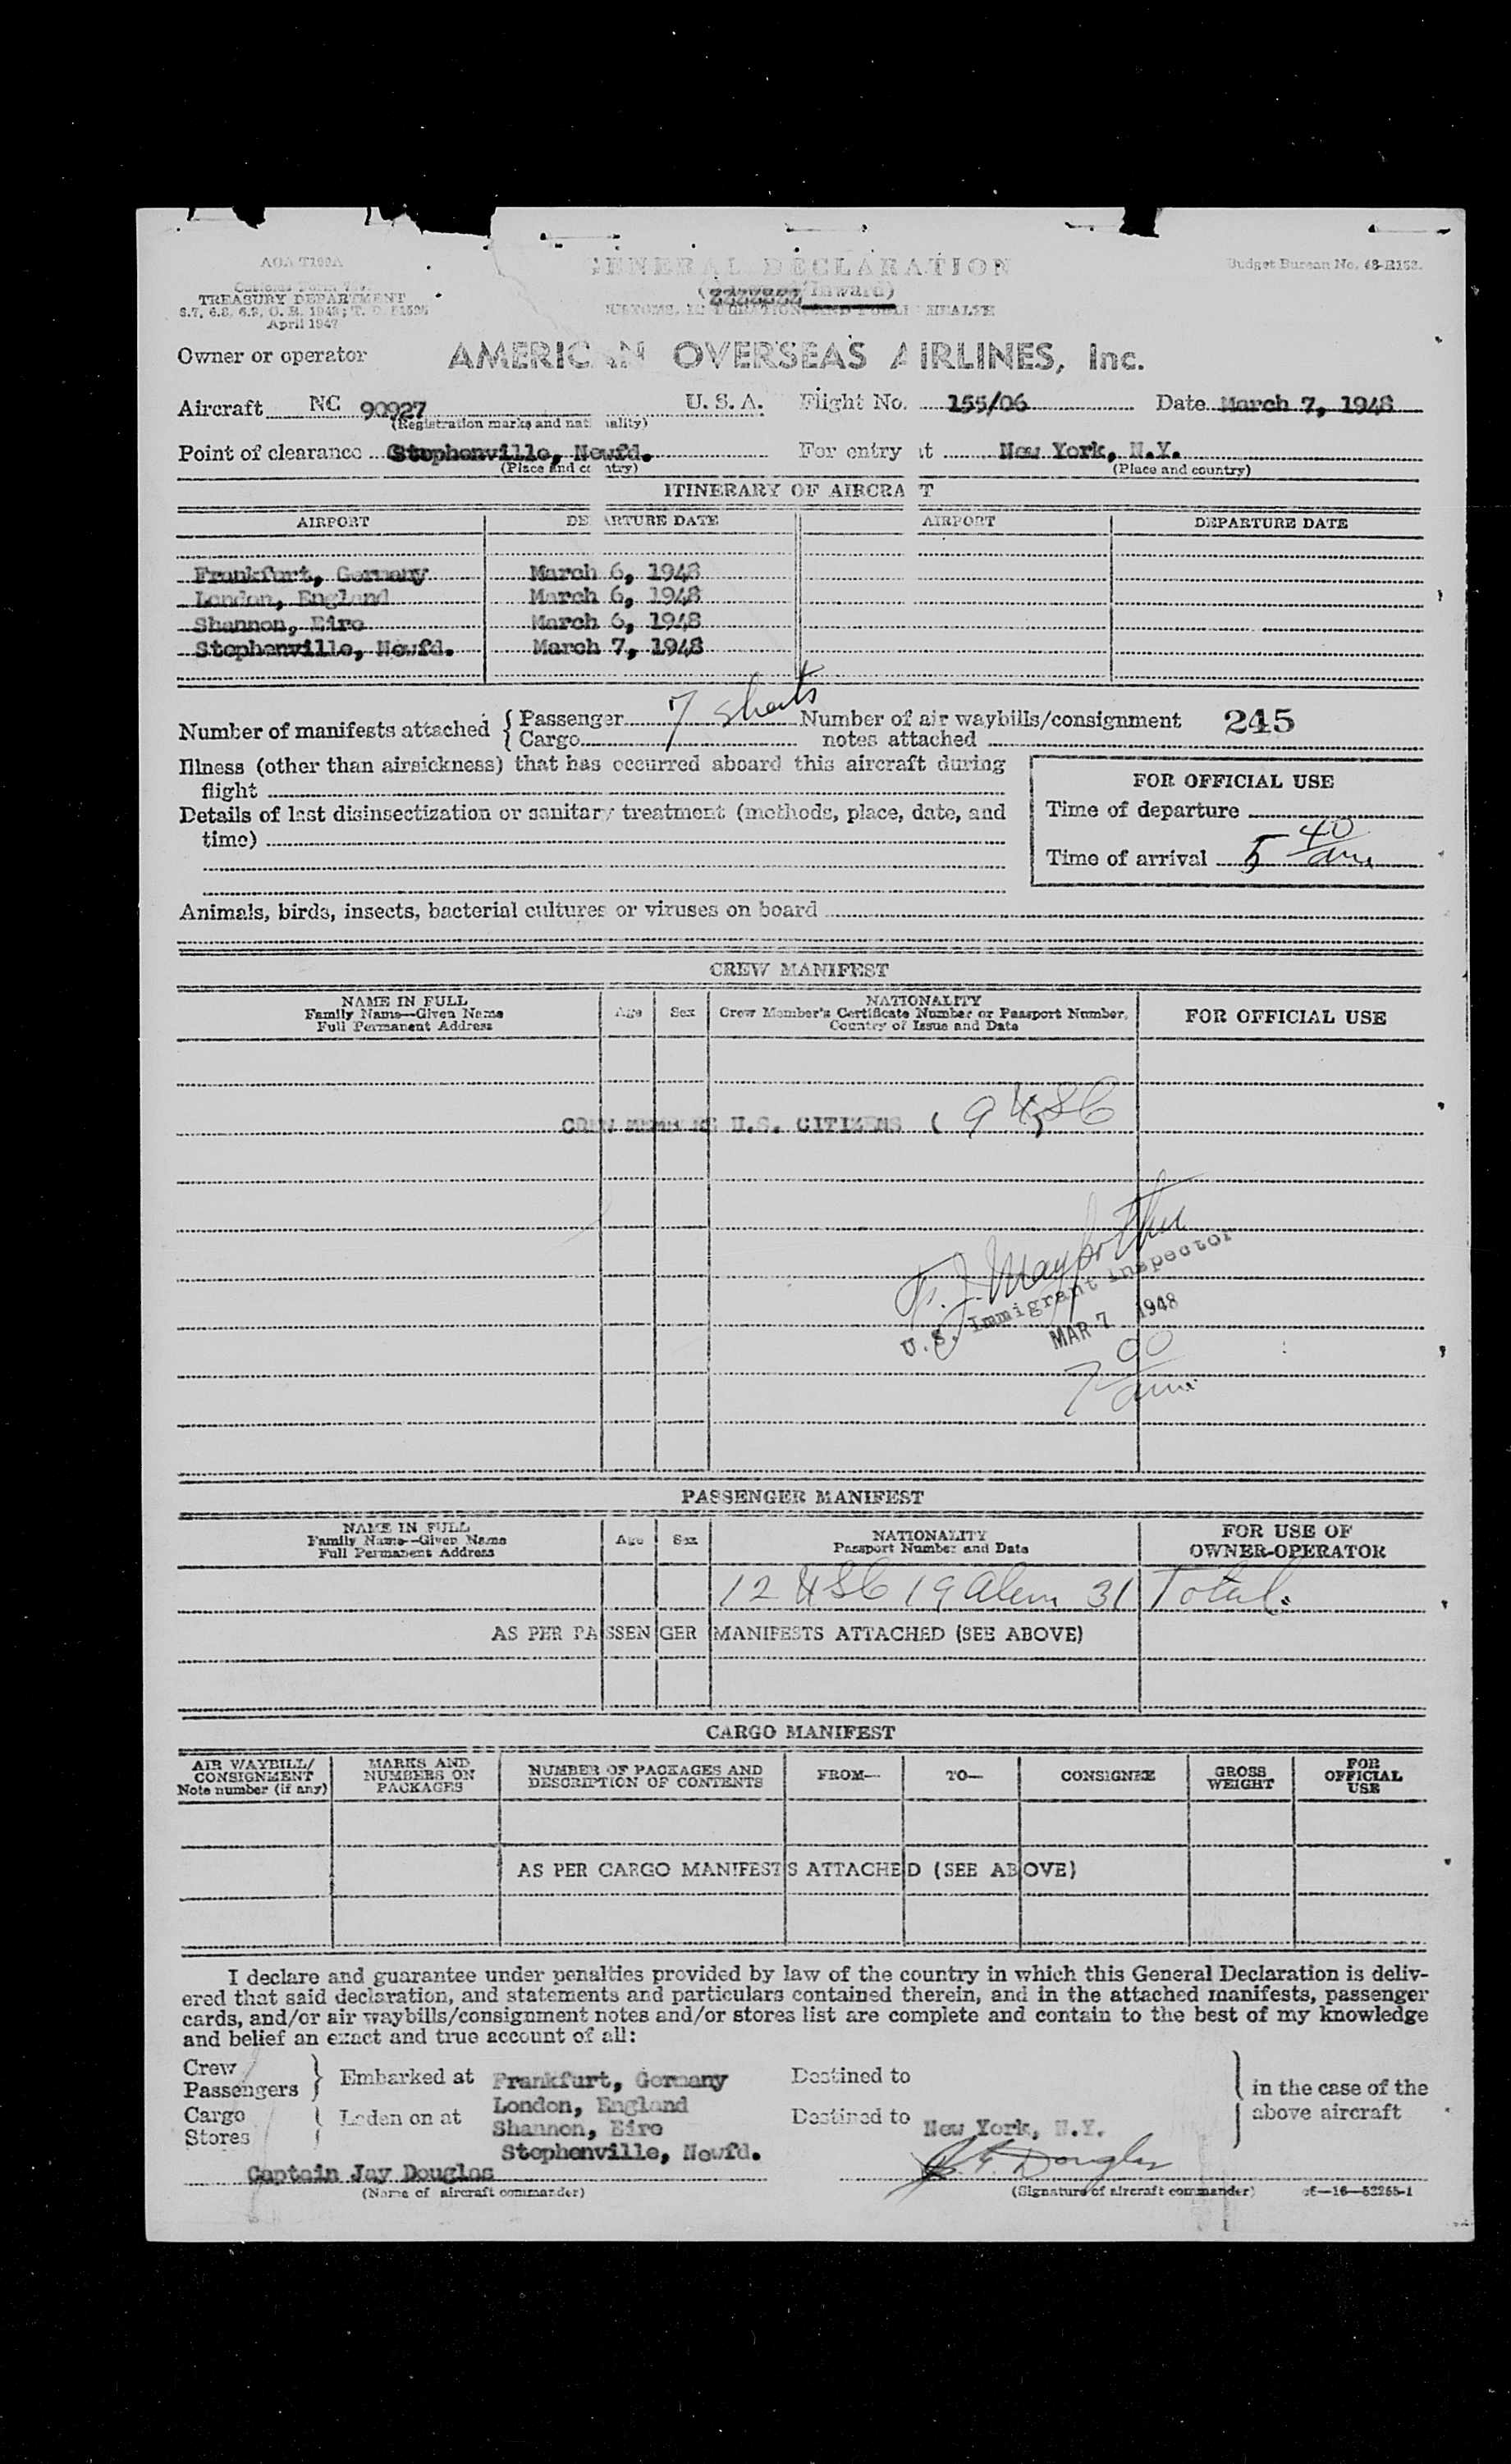 AOA T100A
Customs Form 7507
TREASURY DEPARTMENT
6.7, 6.8, 6.9, C. R. 1943; T. D. 51595
April 1947
GENERAL DECLARATION
(ZZZZZZZ/Inward)
CUSTOMS, IMMIGRATION, AND PUBLIC HEALTH
Budget Bureau No. 48-R152.
Owner or operator AMERICAN OVERSEAS AIRLINES, Inc.
Aircraft NC 90927 U. S. A. Flight No. 155/06 Date March 7, 1948
(Registration marks and nationality)
Point of clearance Stephenville, Newfd. For entry at New York, N.Y.
(Place and country) (Place and country)
ITINERARY OF AIRCRAFT
AIRPORT DEPARTURE DATE AIRPORT DEPARTURE DATE
Frankfurt, Germany March 6, 1948
London, England March 6, 1948
Shannon, Eire March 6, 1948
Stephenville, Newfd. March 7, 1948
Number of manifests attached { Passenger 7 sheets Number of air waybills/consignment 245
Cargo notes attached
Illness (other than airsickness) that has occurred aboard this aircraft during
flight
Details of last disinsectization or sanitary treatment (methods, place, date, and
time)
FOR OFFICIAL USE
Time of departure
Time of arrival 5 40 am
Animals, birds, insects, bacterial cultures or viruses on board
CREW MANIFEST
NAME IN FULL
Family Name—Given Name
Full Permanent Address
Age Sex
NATIONALITY
Crew Member's Certificate Number or Passport Number,
Country of Issue and Date
FOR OFFICIAL USE
CREW MEMBERS U.S. CITIZENS ( 9 USC
U.S. Immigrant Inspector
MAR 7 1948
7 00 am
PASSENGER MANIFEST
NAME IN FULL
Family Name—Given Name
Full Permanent Address
Age Sex
NATIONALITY
Passport Number and Date
FOR USE OF
OWNER-OPERATOR
12 USC 19 Alien 31 Total.
AS PER PASSENGER MANIFESTS ATTACHED (SEE ABOVE)
CARGO MANIFEST
AIR WAYBILL/
CONSIGNMENT
Note number (if any)
MARKS AND
NUMBERS ON
PACKAGES
NUMBER OF PACKAGES AND
DESCRIPTION OF CONTENTS
FROM— TO— CONSIGNEE
GROSS
WEIGHT
FOR
OFFICIAL
USE
AS PER CARGO MANIFESTS ATTACHED (SEE ABOVE)
I declare and guarantee under penalties provided by law of the country in which this General Declaration is deliv-
ered that said declaration, and statements and particulars contained therein, and in the attached manifests, passenger
cards, and/or air waybills/consignment notes and/or stores list are complete and contain to the best of my knowledge
and belief an exact and true account of all:
Crew
Passengers } Embarked at Frankfurt, Germany Destined to } in the case of the
London, England above aircraft
Cargo
Stores } Laden on at Shannon, Eire Destined to New York, N.Y.
Stephenville, Newfd.
Captain Jay Douglas Douglas
(Name of aircraft commander) (Signature of aircraft commander) c6—16—52255-1